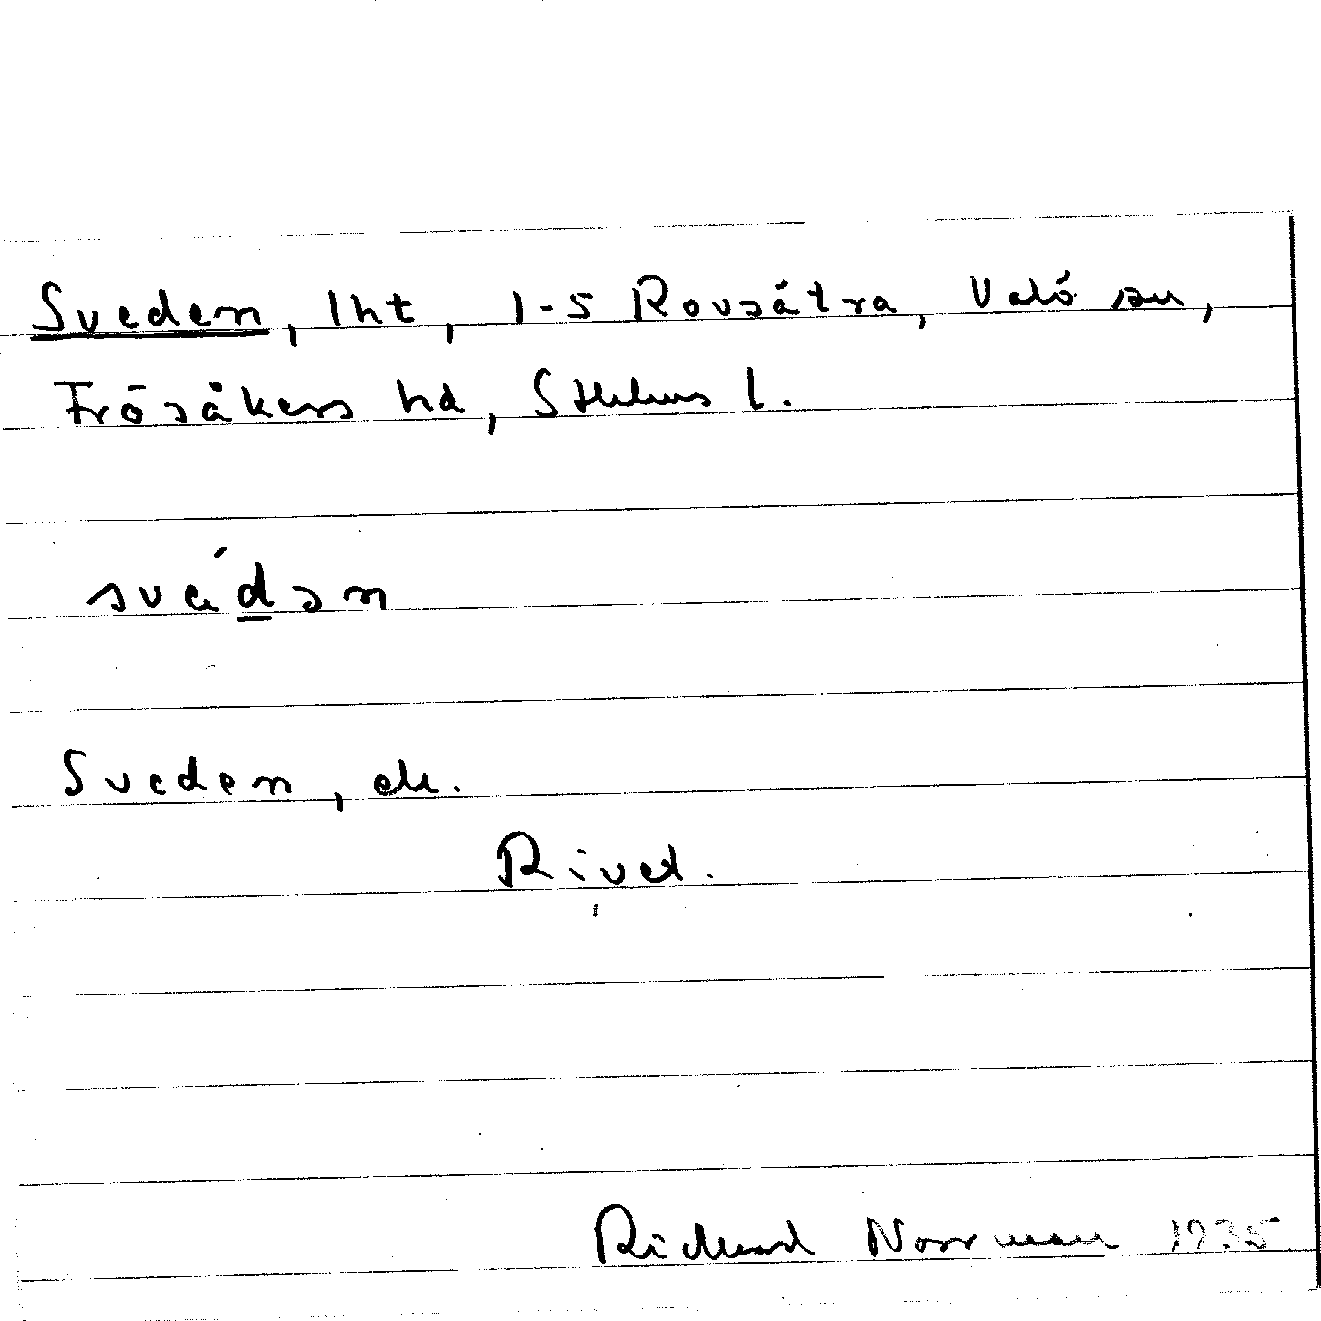 Sveden, lht, 1-5 Rovsätra, Valö sn,
Frösåkers hd, Sthlms l.
Sveden, ek.
Rivet.
Richard Norrman 1935